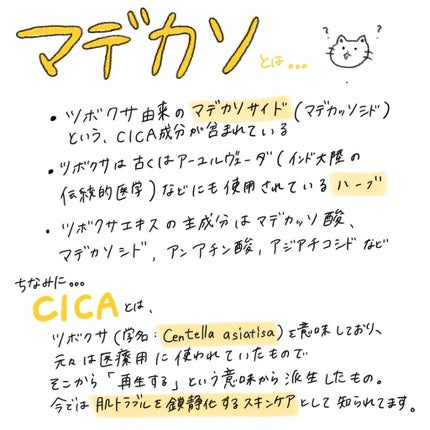 マデカソとは...
? ?
・ツボクサ由来のマデカソサイド(マデカッソシド)
という、CICA成分が含まれている
・ツボクサは古くはアーユルヴェーダ(インド大陸の
伝統的医学)などにも使用されているハーブ
・ツボクサエキスの主成分はマデカッソ酸、
マデカソシド, アシアチン酸, アジアチコシドなど
ちなみに...
CICAとは、
ツボクサ(学名:Centella asiatisa)を意味しており、
元々は医療用に使われていたもので
そこから「再生する」という意味から派生したもの。
今では肌トラブルを鎮静化するスキンケアとして知られてます。